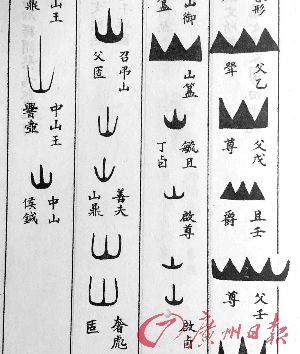 形
父乙
父戊
尊
且壬
爵
父壬
尊
山御
簋
山簋
毓且
丁卣
啟尊
啟卣
召弔山
父匜
善夫
山鼎
奢虎
匜
山王
鼎
中山王
壺
中山
侯鉞
廣州日報